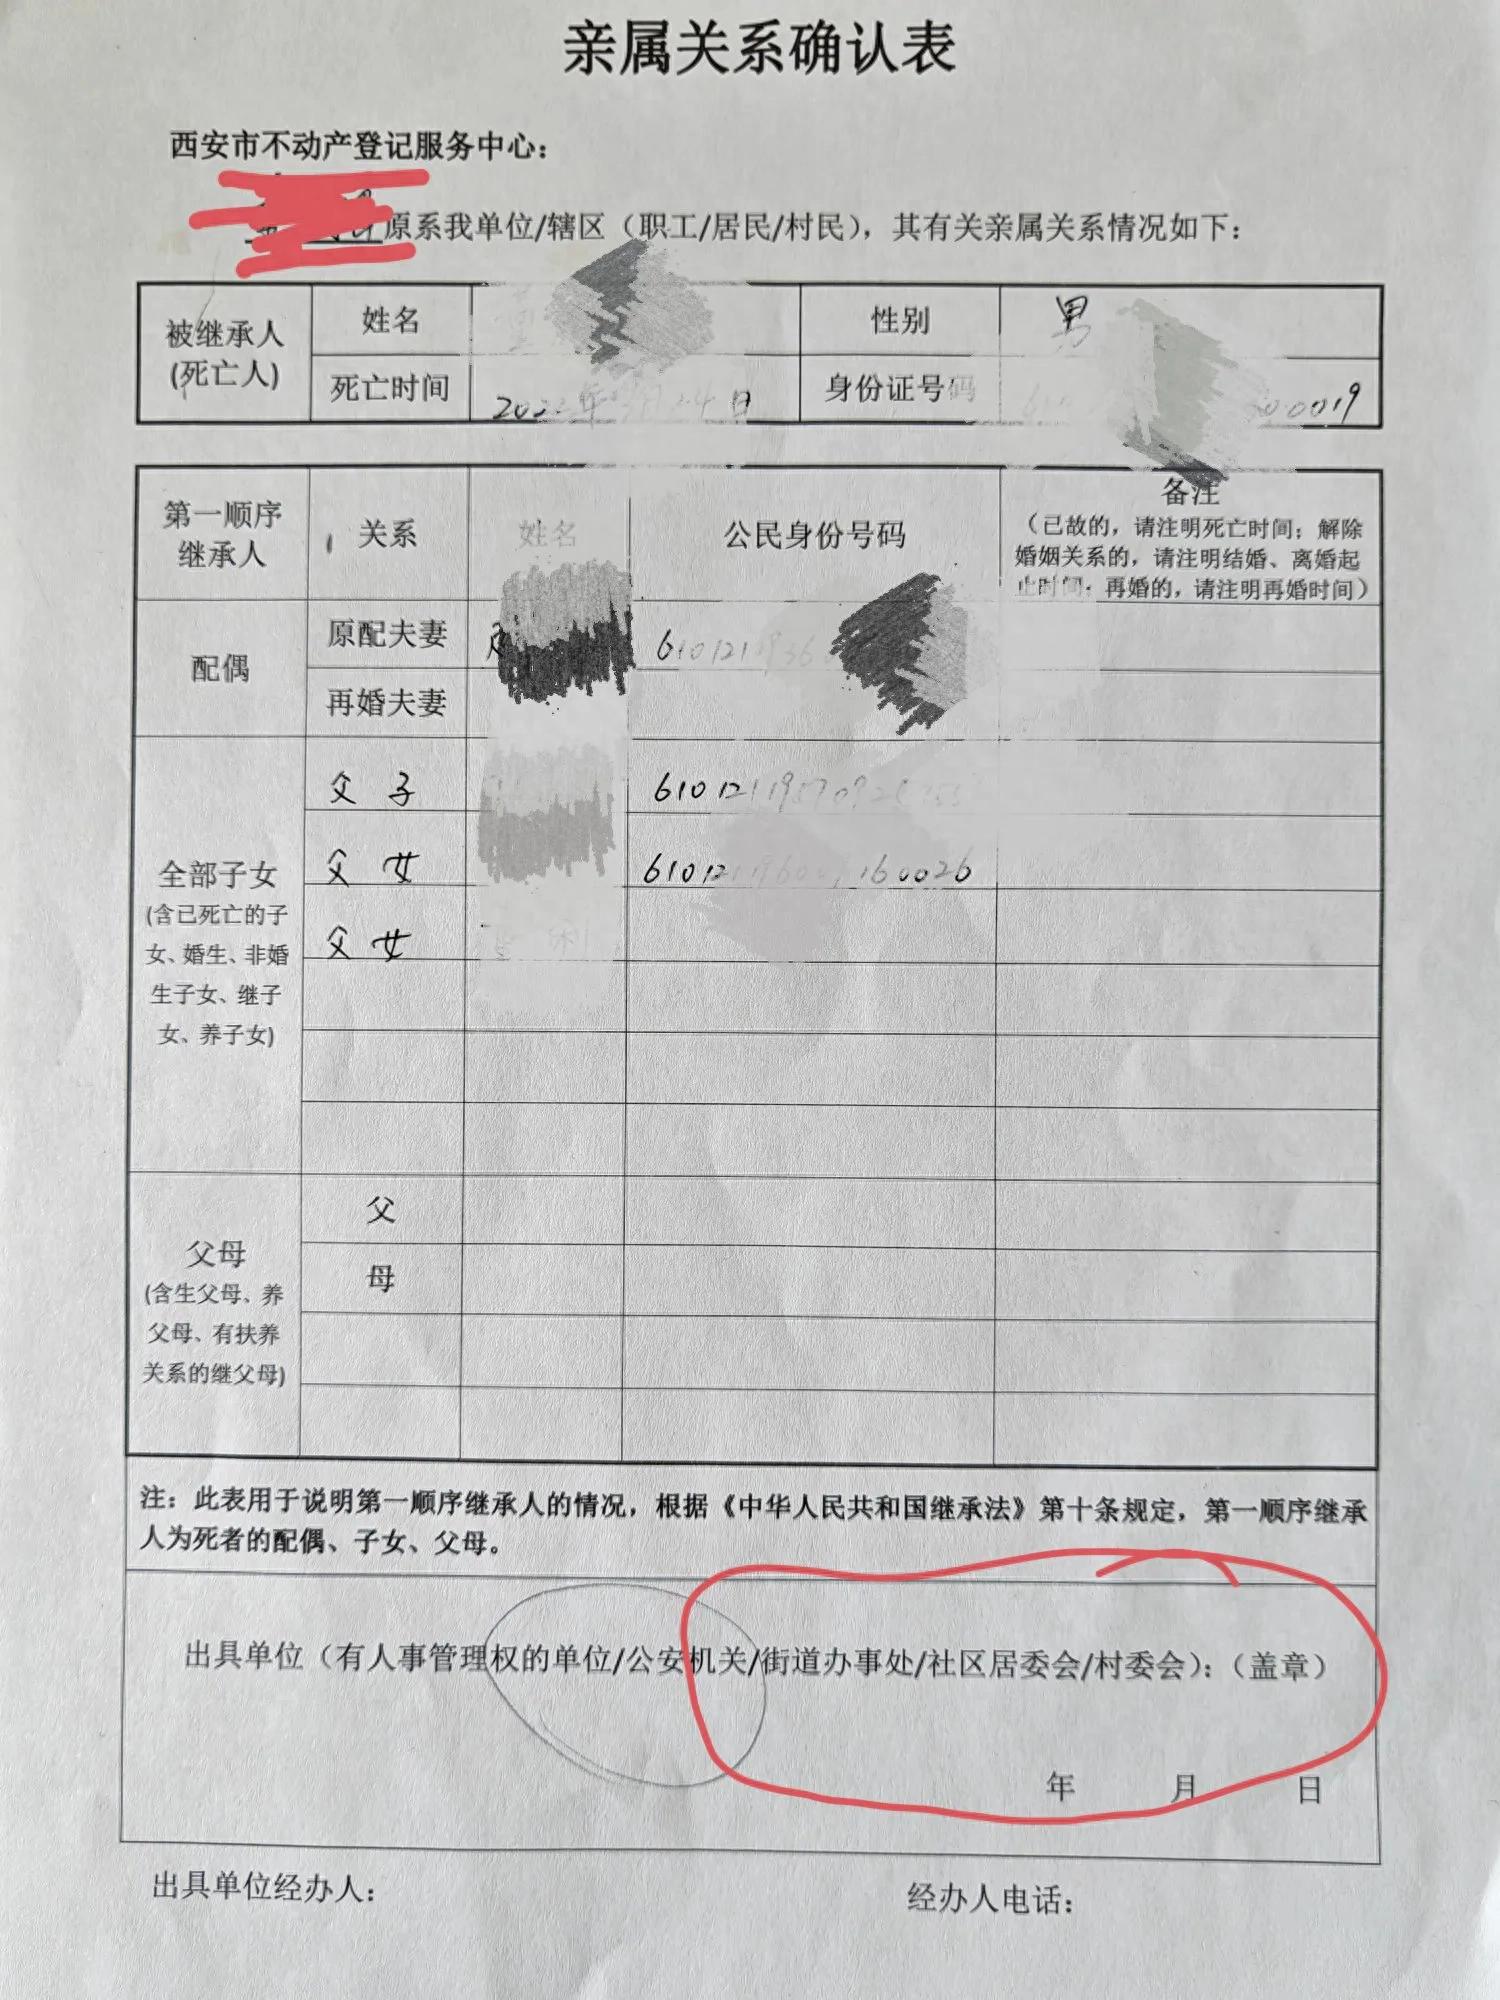 亲属关系确认表
西安市不动产登记服务中心：
原系我单位/辖区（职工/居民/村民），其有关亲属关系情况如下：
被继承人
(死亡人)
姓名
性别
男
死亡时间
日
身份证号码
0019
第一顺序
继承人
关系
姓名
公民身份号码
备注
（已故的，请注明死亡时间；解除
婚姻关系的，请注明结婚、离婚起
止时间；再婚的，请注明再婚时间）
配偶
原配夫妻
610121
再婚夫妻
全部子女
(含已死亡的子
女、婚生、非婚
生子女、继子
女、养子女)
父 子
610121
父 女
610121
160026
父 女
父母
(含生父母、养
父母、有扶养
关系的继父母)
父
母
注：此表用于说明第一顺序继承人的情况，根据《中华人民共和国继承法》第十条规定，第一顺序继承
人为死者的配偶、子女、父母。
出具单位（有人事管理权的单位/公安机关/街道办事处/社区居委会/村委会）：（盖章）
年 月 日
出具单位经办人：
经办人电话：